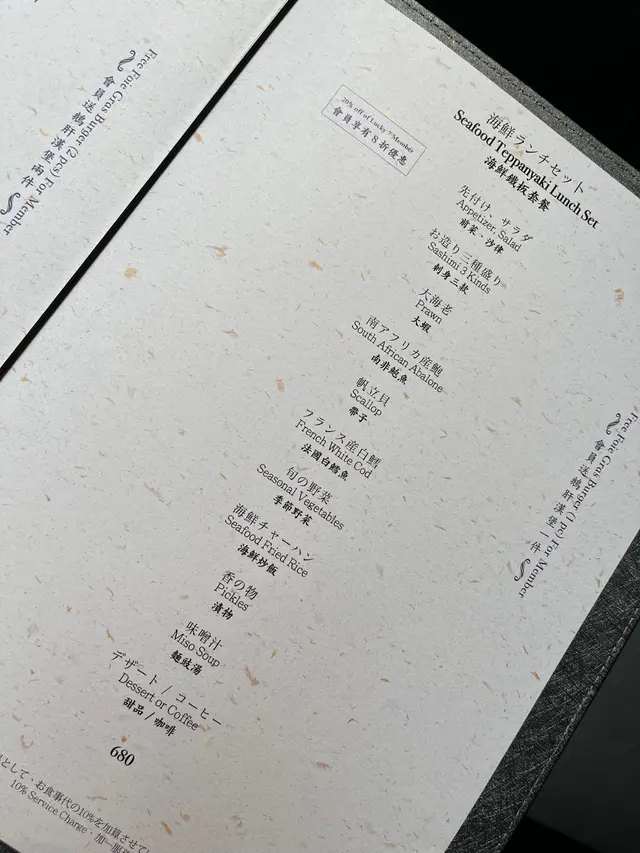 Free Foie Gras Burger (2 pcs) For Member
會員送鵝肝漢堡兩件
20% off of Lucky 7 Member
會員享有8折優惠
海鮮ランチセット
Seafood Teppanyaki Lunch Set
海鮮鐵板套餐
先付け、サラダ
Appetizer, Salad
前菜、沙律
お造り三種盛り
Sashimi 3 Kinds
刺身三款
大海老
Prawn
大蝦
南アフリカ産鮑
South African Abalone
南非鮑魚
帆立貝
Scallop
帶子
フランス産白鱈
French White Cod
法國白鱈魚
旬の野菜
Seasonal Vegetables
季節野菜
海鮮チャーハン
Seafood Fried Rice
海鮮炒飯
香の物
Pickles
漬物
味噌汁
Miso Soup
麵豉湯
デザート / コーヒー
Dessert or Coffee
甜品 / 咖啡
680
Free Foie Gras Burger (1 pc) For Member
會員送鵝肝漢堡一件
として、お食事代の10%を加算させて
10% Service Charge．加一服